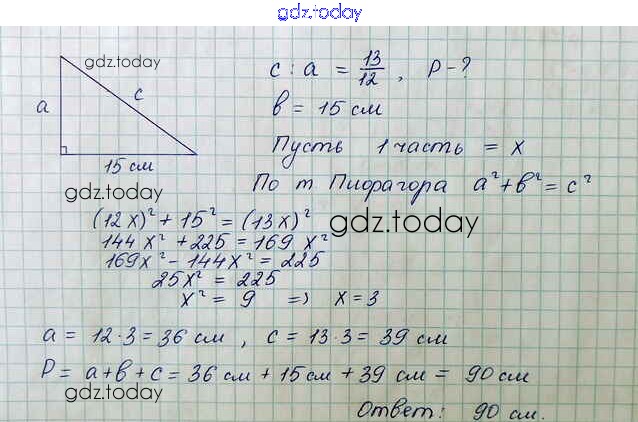 gdz.today
gdz.today
c : a = 13/12 , P - ?
a
c
b = 15 см
Пусть 1 часть = x
15 см
По т Пифрагора a² + b² = c²
gdz.today
(12x)² + 15² = (13x)²
gdz.today
144x² + 225 = 169 x²
169x² - 144x² = 225
25x² = 225
x² = 9 => x = 3
a = 12·3 = 36 см , c = 13·3 = 39 см
P = a+b+c = 36 см + 15 см + 39 см = 90 см
gdz.today
Ответ: 90 см.